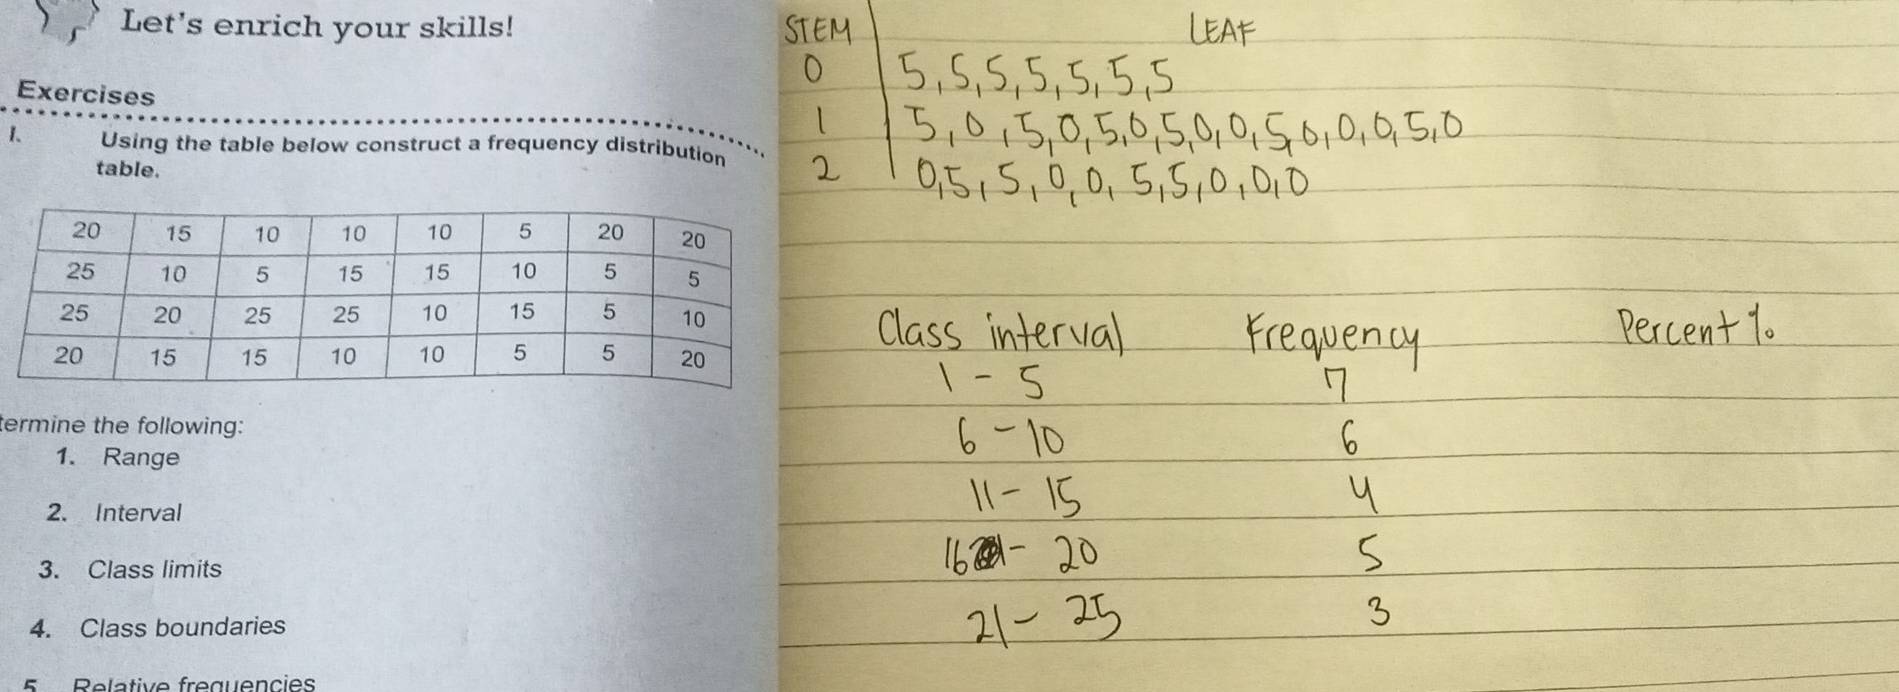 Let's enrich your skills!
Exercises
I. Using the table below construct a frequency distribution
table.
20 15 10 10 10 5 20 20
25 10 5 15 15 10 5 5
25 20 25 25 10 15 5 10
20 15 15 10 10 5 5 20
termine the following:
1. Range
2. Interval
3. Class limits
4. Class boundaries
5 Relative frequencies
STEM LEAF
0 5,5,5,5,5,5,5
1 5,0,5,0,5,0,5,0,0,5,0,0,0,5,0
2 0,5,5,0,0,5,5,0,0,0
Class interval Frequency Percent %
1 - 5 7
6 - 10 6
11 - 15 4
16 - 20 5
21 - 25 3